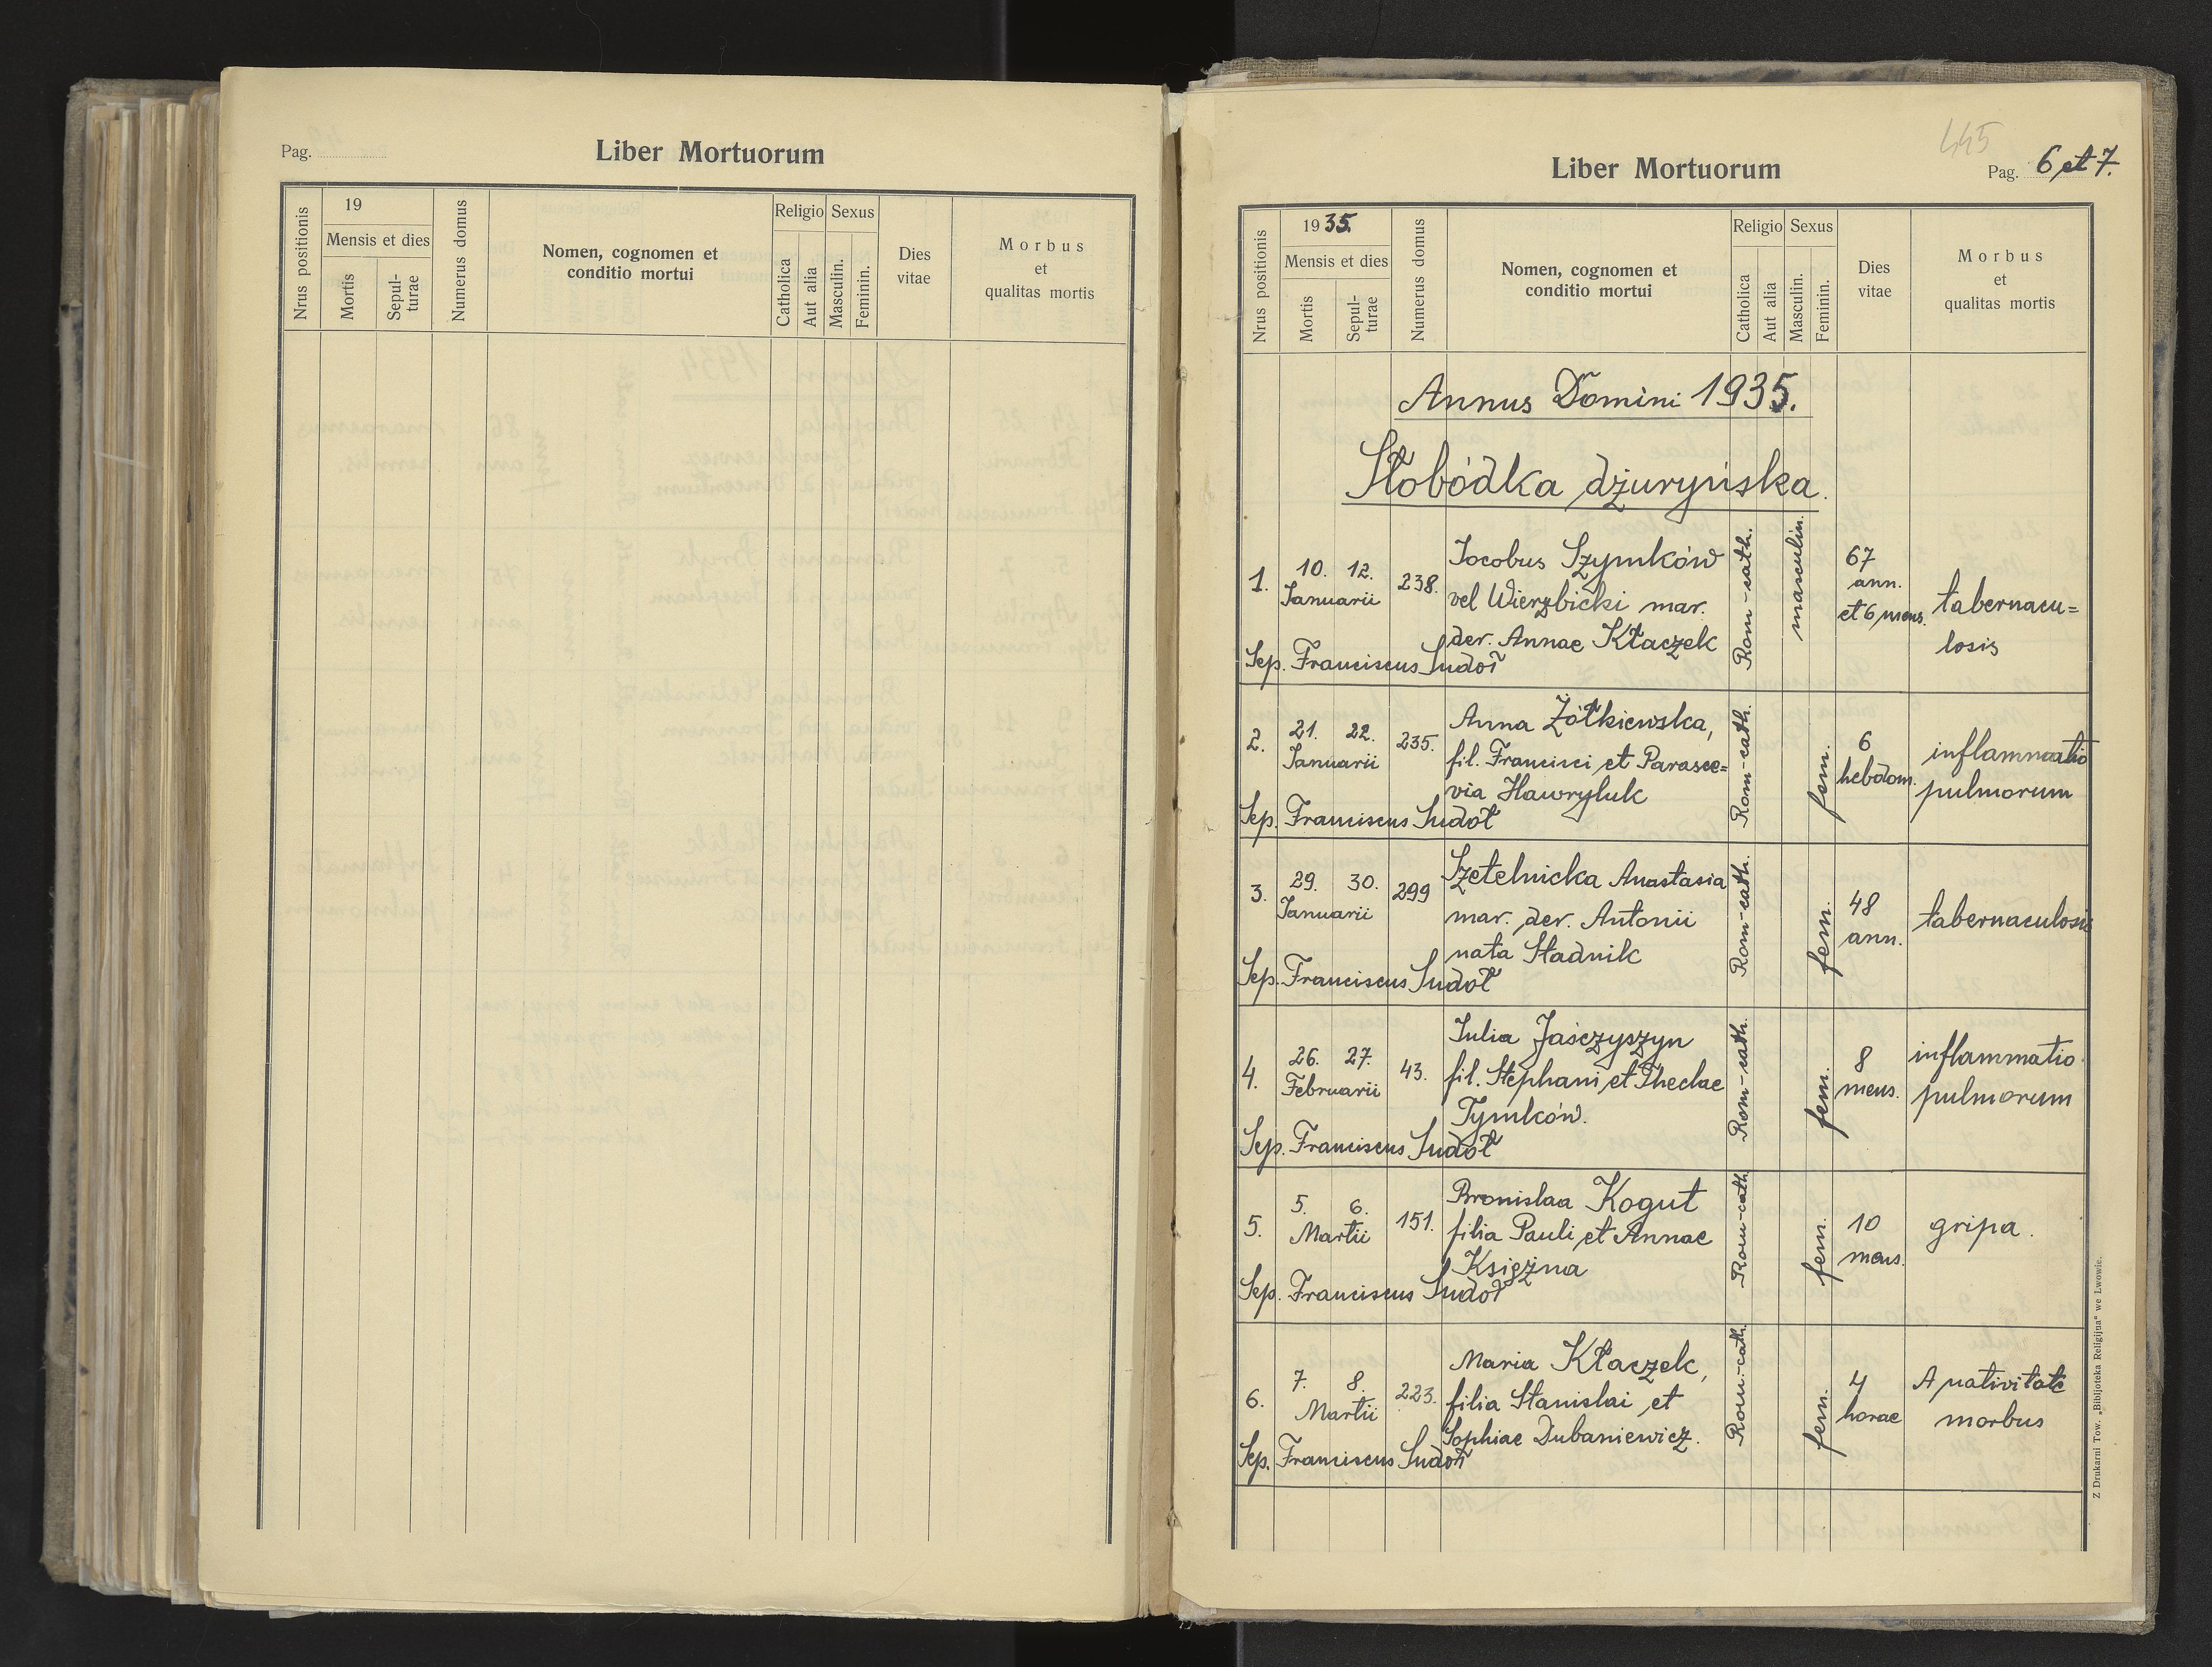 Pag.
Liber Mortuorum
Nrus positionis
19
Mensis et dies
Mortis
Sepul-
turae
Numerus domus
Nomen, cognomen et
conditio mortui
Religio
Catholica
Aut alia
Sexus
Masculin.
Feminin.
Dies
vitae
Morbus
et
qualitas mortis
445
Liber Mortuorum
Pag. 6 et 7.
Nrus positionis
1935.
Mensis et dies
Mortis
Sepul-
turae
Numerus domus
Nomen, cognomen et
conditio mortui
Religio
Catholica
Aut alia
Sexus
Masculin.
Feminin.
Dies
vitae
Morbus
et
qualitas mortis
Annus Domini 1935.
Słobódka dżuryńska.
1.
10. 12.
Januarii
238.
Jocobus Szymków
vel Wierzbicki mar.
der. Annae Kłaczek
Rom-cath.
masculin.
67
ann.
et 6 mens.
tabernacu=
losis
Sep. Franciscus Sudoł
2.
21. 22.
Januarii
235.
Anna Żółkiewska,
fil. Francisci et Parasce=
via Hawryluk
Rom-cath.
fem.
6
hebdom.
inflammatio
pulmorum
Sep. Franciscus Sudoł
3.
29. 30.
Januarii
299
Szetelnicka Anastasia
mar. der. Antonii
nata Stadnik
Rom-cath.
fem.
48
ann.
tabernaculosis
Sep. Franciscus Sudoł
4.
26. 27.
Februarii
43.
Julia Jaśczyszyn
fil. Stephani et Theclae
Tymków.
Rom-cath.
fem.
8
mens.
inflammatio
pulmorum
Sep. Franciscus Sudoł
5.
5. 6.
Martii
151.
Bronislaa Kogut
filia Pauli et Annae
Księżna
Rom-cath
fem.
10
mens.
gripa.
Sep. Franciscus Sudoł
6.
7. 8.
Martii
223.
Maria Kłaczek,
filia Stanislai et
Sophiae Dubaniewicz.
Rom.-cath.
fem.
4
horae
A nativitate
morbus
Sep. Franciscus Sudoł
Z Drukarni Tow. „Bibljoteka Religijna" we Lwowie.